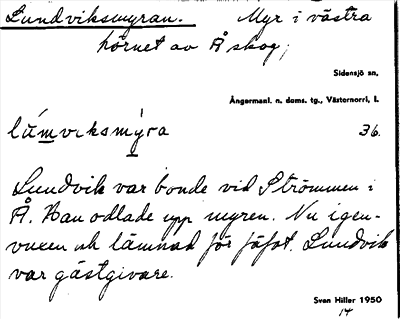 Lundviksmyran. Myr i västra
hörnet av Å skog,
Sidensjö sn,
Ångermanl. n. doms. tg., Västernorrl. l.
lúm̲viksmỳ̲ra 36.
Lundvik var bonde vid Strömmen i
Å. Han odlade upp myren. Nu igen-
vuxen och lämnad för fäfot. Lundvik
var gästgivare.
Sven Hiller 1950
14